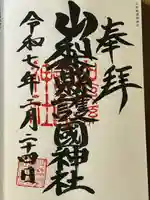 奉拝
山梨縣護國神社
令和七年二月二十四日